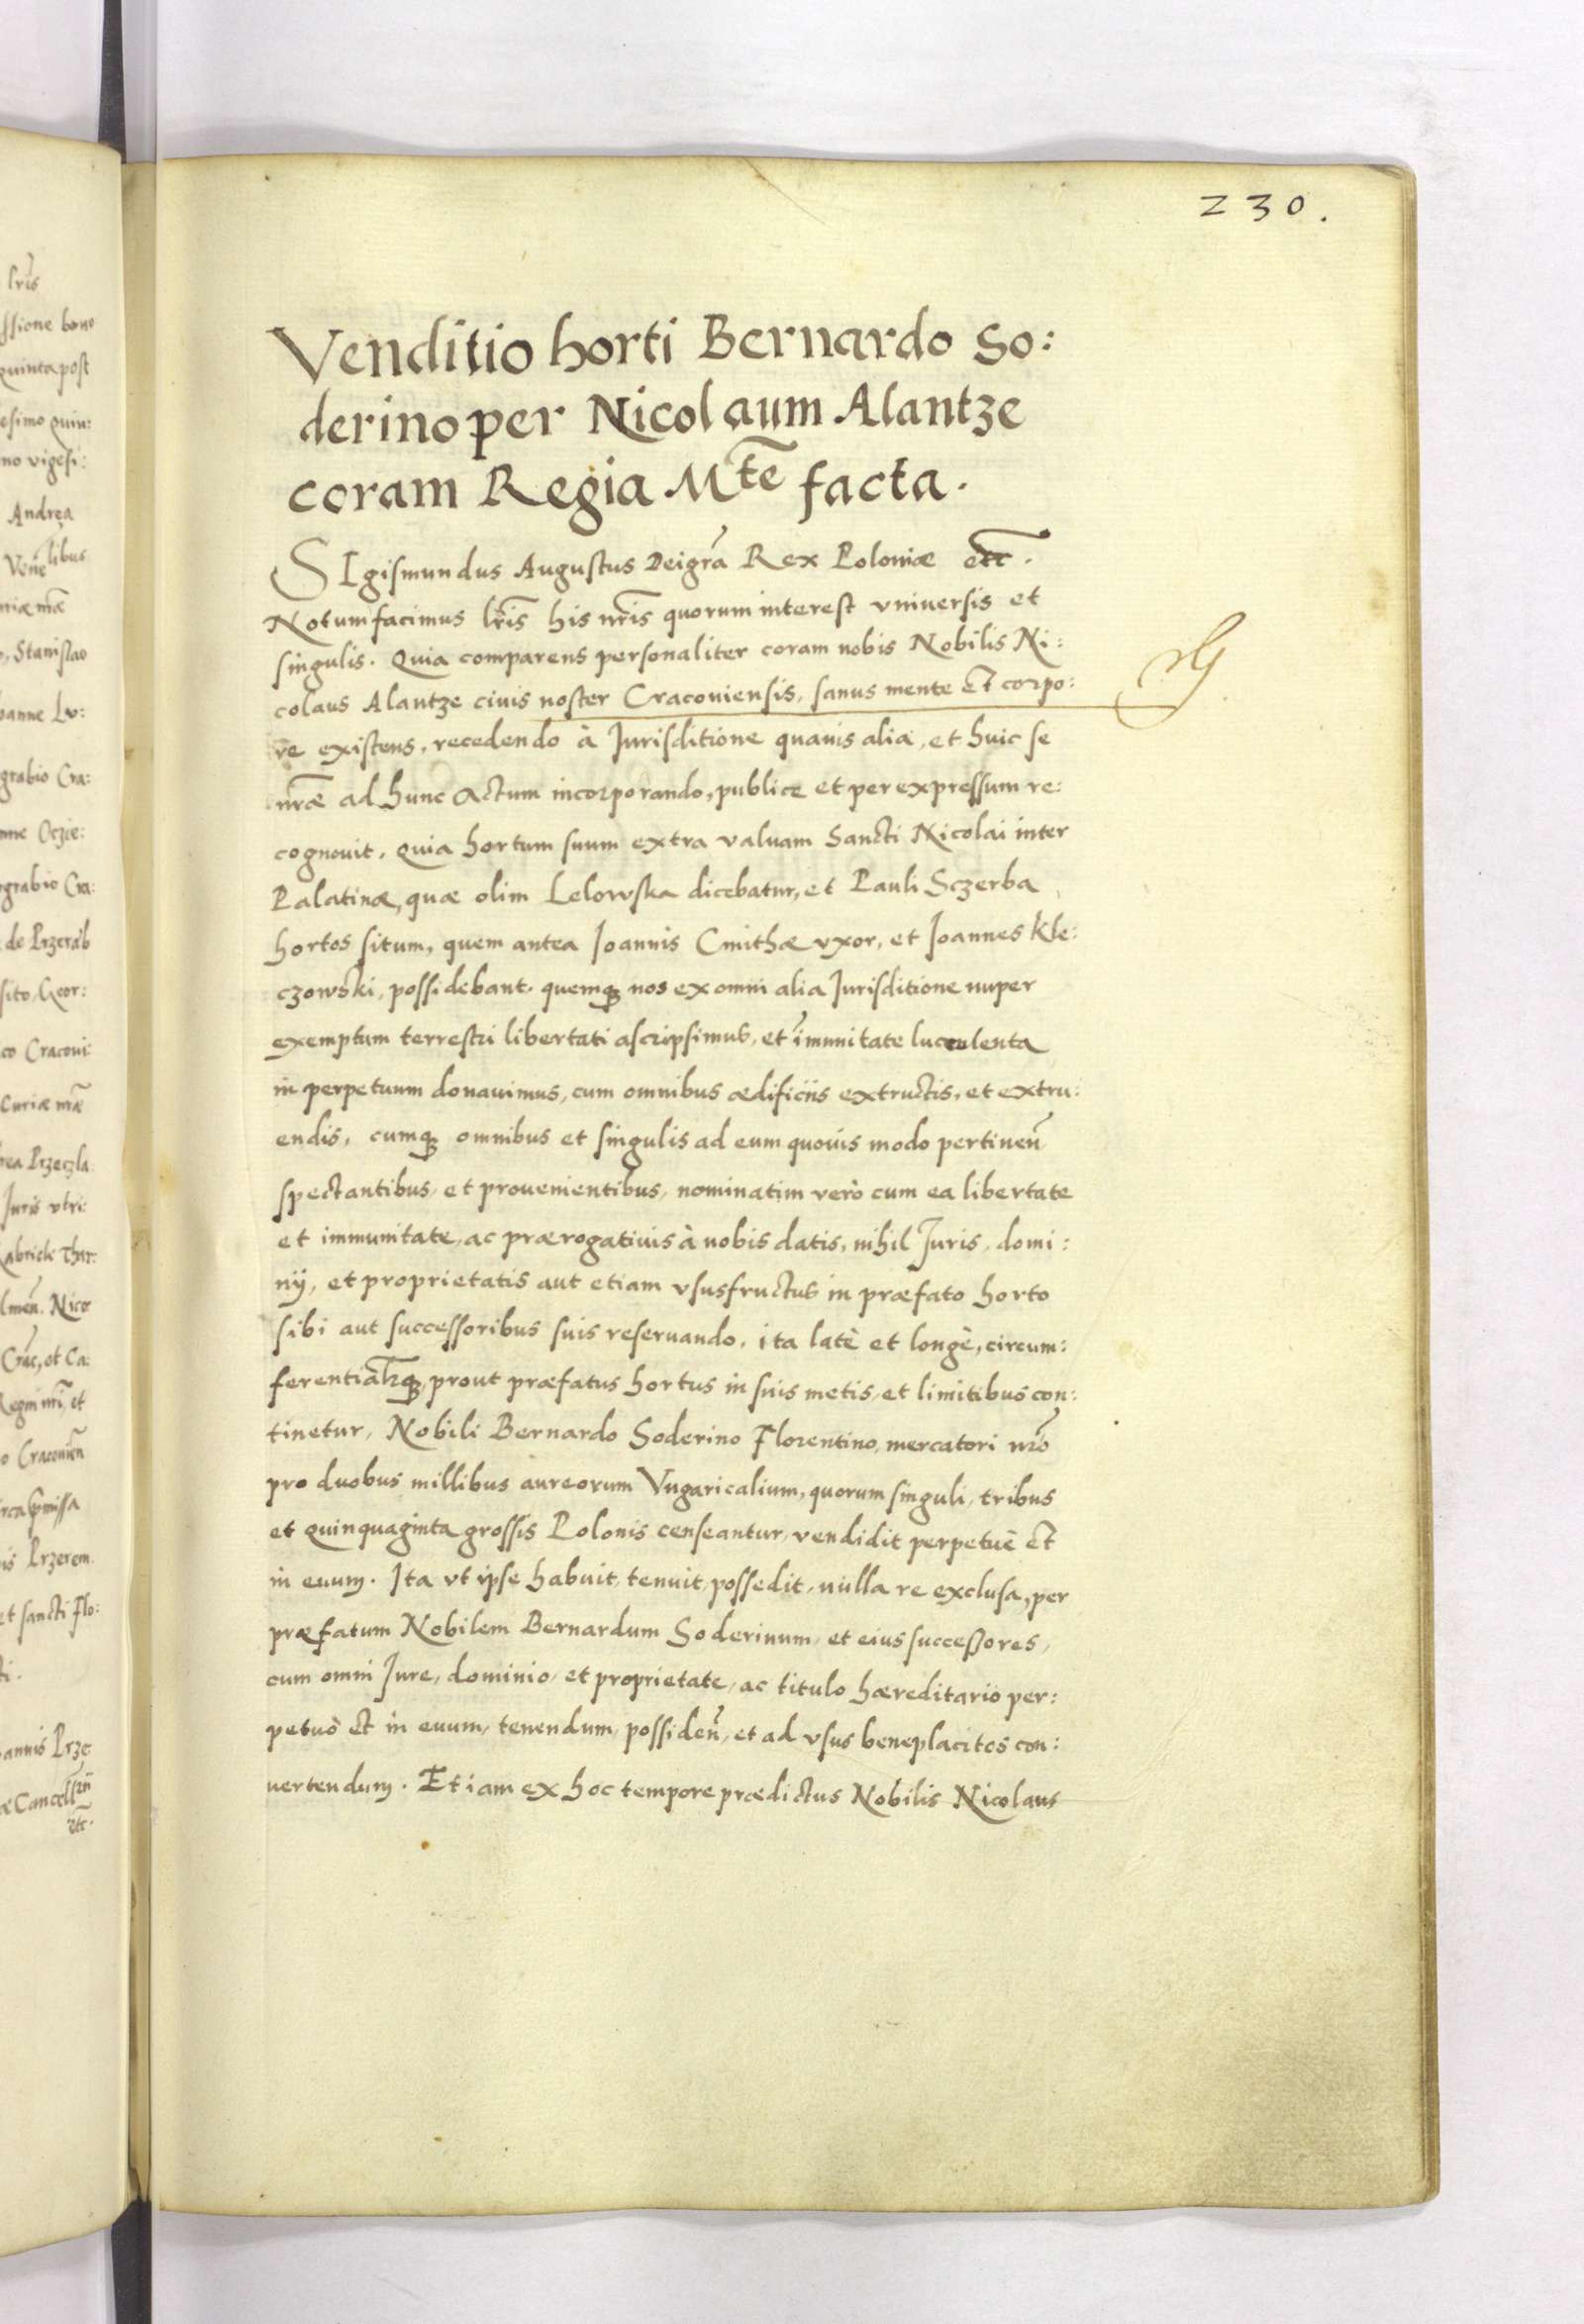 230.
Venditio horti Bernardo So:
derino per Nicolaum Alantze
coram Regia Mte facta.
SIgismundus Augustus Dei gra Rex Poloniæ etc.
Notum facimus lris his nris quorum interest vniuersis et
singulis. Quia comparens personaliter coram nobis Nobilis Ni:
colaus Alantze ciuis noster Cracouiensis, sanus mente et corpo:
re existens, recedendo à Jurisditione quauis alia, et huic se
nræ ad hunc actum incorporando, publice et per expressum re:
cognouit. Quia hortum suum extra valuam Sancti Nicolai inter
Palatinæ, quæ olim Lelowska dicebatur, et Pauli Sczerba
hortos situm, quem antea Joannis Cmithæ vxor, et Joannes Kle:
czowski, possidebant. quemq nos ex omni alia Jurisditione nuper
exemptum terrestri libertati ascripsimus, et imunitate luculenta
in perpetuum donauimus, cum omnibus ædificiis extructis, et extru:
endis, cumq omnibus et singulis ad eum quouis modo pertinen
spectantibus, et prouenientibus, nominatim verò cum ea libertate
et immunitate, ac prærogatiuis à nobis datis, nihil Juris, domi:
nij, et proprietatis aut etiam vsusfructus in præfato horto
sibi aut successoribus suis reseruando, ita latè et longè, circum:
prout præfatus hortus in suis metis, et limitibus con:
tinetur, Nobili Bernardo Soderino Florentino, mercatori nro
pro duobus millibus aureorum Vngaricalium, quorum singuli, tribus
et quinquaginta grossis Polonis censeantur, vendidit perpetuè et
in euum. Ita vt ipse habuit, tenuit, possedit, nulla re exclusa, per
præfatum Nobilem Bernardum Soderinum, et eius successores,
cum omni Jure, dominio, et proprietate, ac titulo hæreditario per:
petuò et in euum, tenendum, possiden, et ad vsus beneplacitos con:
uertendum. Etiam ex hoc tempore prædictus Nobilis Nicolaus